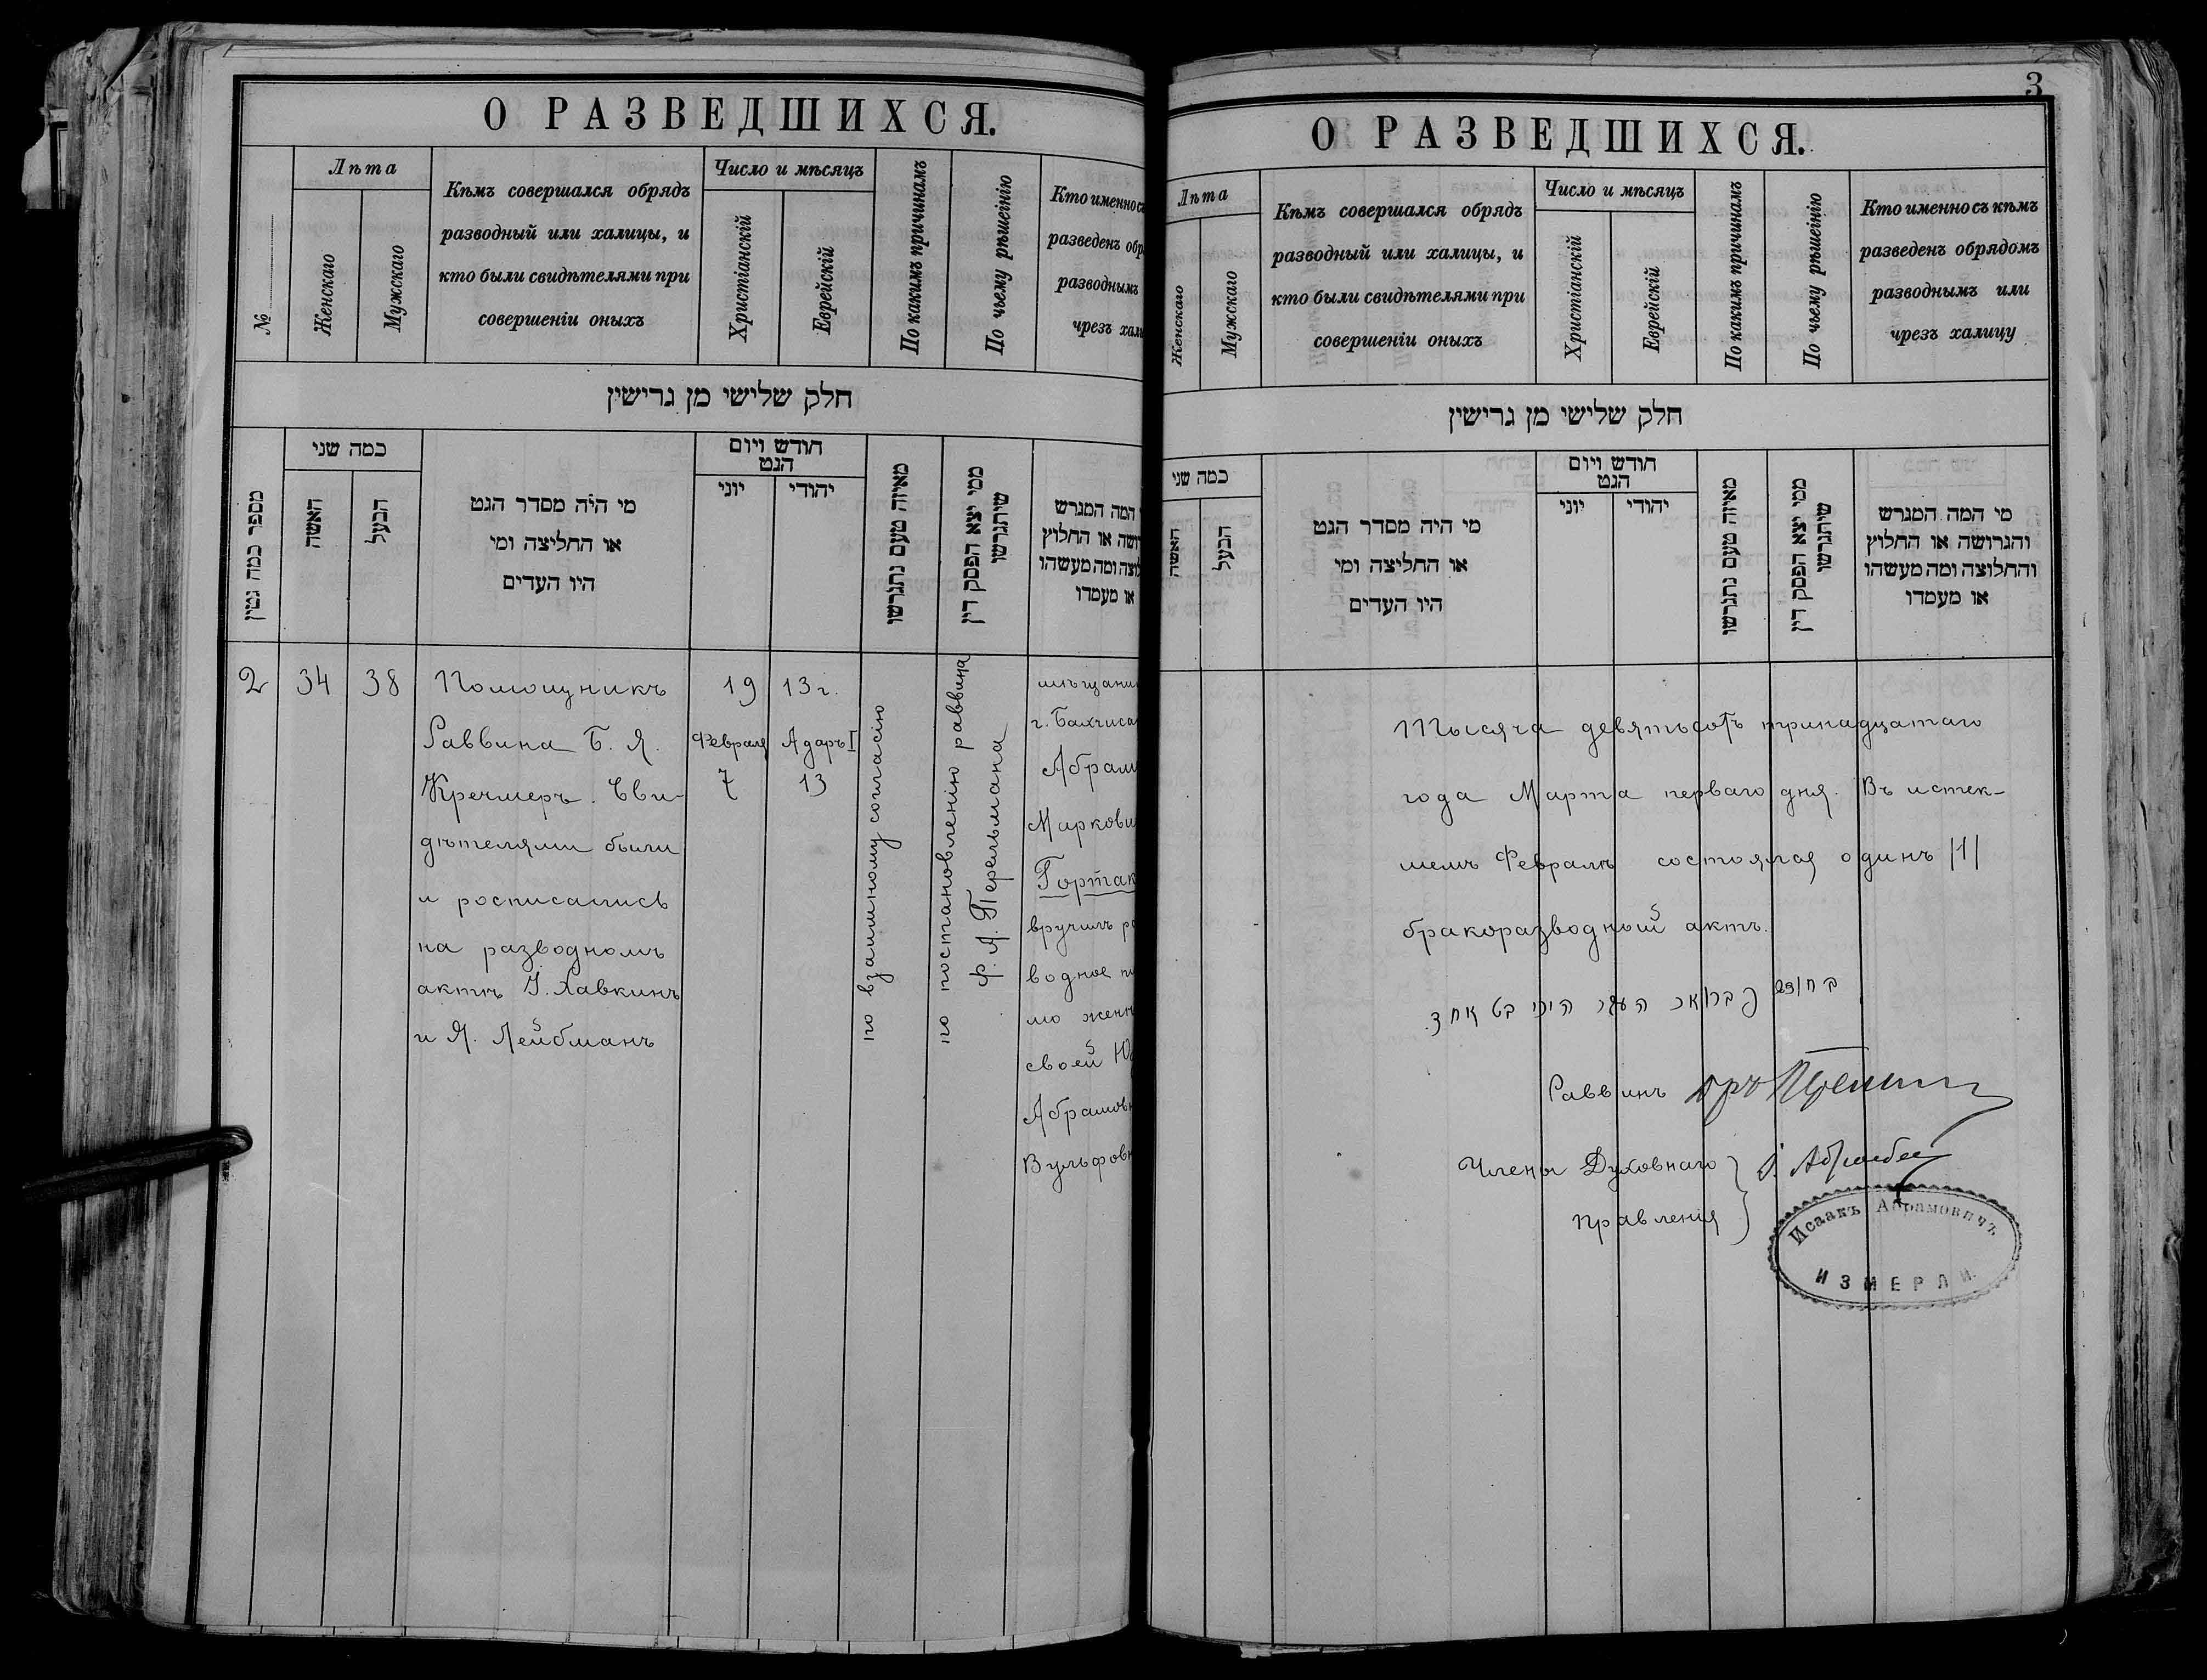 О РАЗВЕДШИХСЯ.
№
Лѣта
Женскаго
Мужскаго
Кѣмъ совершался обрядъ
разводный или халицы, и
кто были свидѣтелями при
совершеніи оныхъ
Число и мѣсяцъ
Христіанскій
Еврейскій
По какимъ причинамъ
По чьему рѣшенію
Кто именно съ
разведенъ обр
разводнымъ
чрезъ хали
חלק שלישי מן גרישין
מספר כמה גטין
כמה שני
האשה
הבעל
מי היה מסדר הגט
או החליצה ומי
היו העדים
חודש ויום
הגט
יוני
יהודי
מאיזה טעם נתגרשו
ממי יצא הפסק דין
שיתגרשו
המה המגרש
ושה או החלוץ
לוצה ומה מעשהו
או מעמדו
2
34
38
Помощникъ
Раввина Б. Я.
Кречмеръ. Сви-
дѣтелями были
и росписались
на разводномъ
актѣ І. Хавкинъ
и Я. Лейбманъ
19 13 г.
Февраля Адаръ I
7 13
по взаимному согласію
по постановленію раввина
Ф. Я. Перельмана
мѣщани
г. Бахчиса
Абрам
Маркови
Гортак
вручилъ ра
водное пи
мо жен
своей Ю
Абрамов
Вульфовн
3
О РАЗВЕДШИХСЯ.
Лѣта
Женскаго
Мужскаго
Кѣмъ совершался обрядъ
разводный или халицы, и
кто были свидѣтелями при
совершеніи оныхъ
Число и мѣсяцъ
Христіанскій
Еврейскій
По какимъ причинамъ
По чьему рѣшенію
Кто именно съ кѣмъ
разведенъ обрядомъ
разводнымъ или
чрезъ халицу
חלק שלישי מן גרישין
כמה שני
האשה
הבעל
מי היה מסדר הגט
או החליצה ומי
היו העדים
חודש ויום
הגט
יוני
יהודי
מאיזה טעם נתגרשו
ממי יצא הפסק דין
שיתגרשו
מי המה המגרש
והגרושה או החלוץ
והחלוצה ומה מעשהו
או מעמדו
Тысяча девятьсотъ тринадцатаго
года Марта перваго дня. Въ истек-
шемъ Февралѣ состоялся одинъ /1/
бракоразводный актъ.
בחודש
אחד.
Раввинъ
Члены Духовнаго
правленія
Исаакъ Абрамовичъ
ИЗМЕРЛИ.